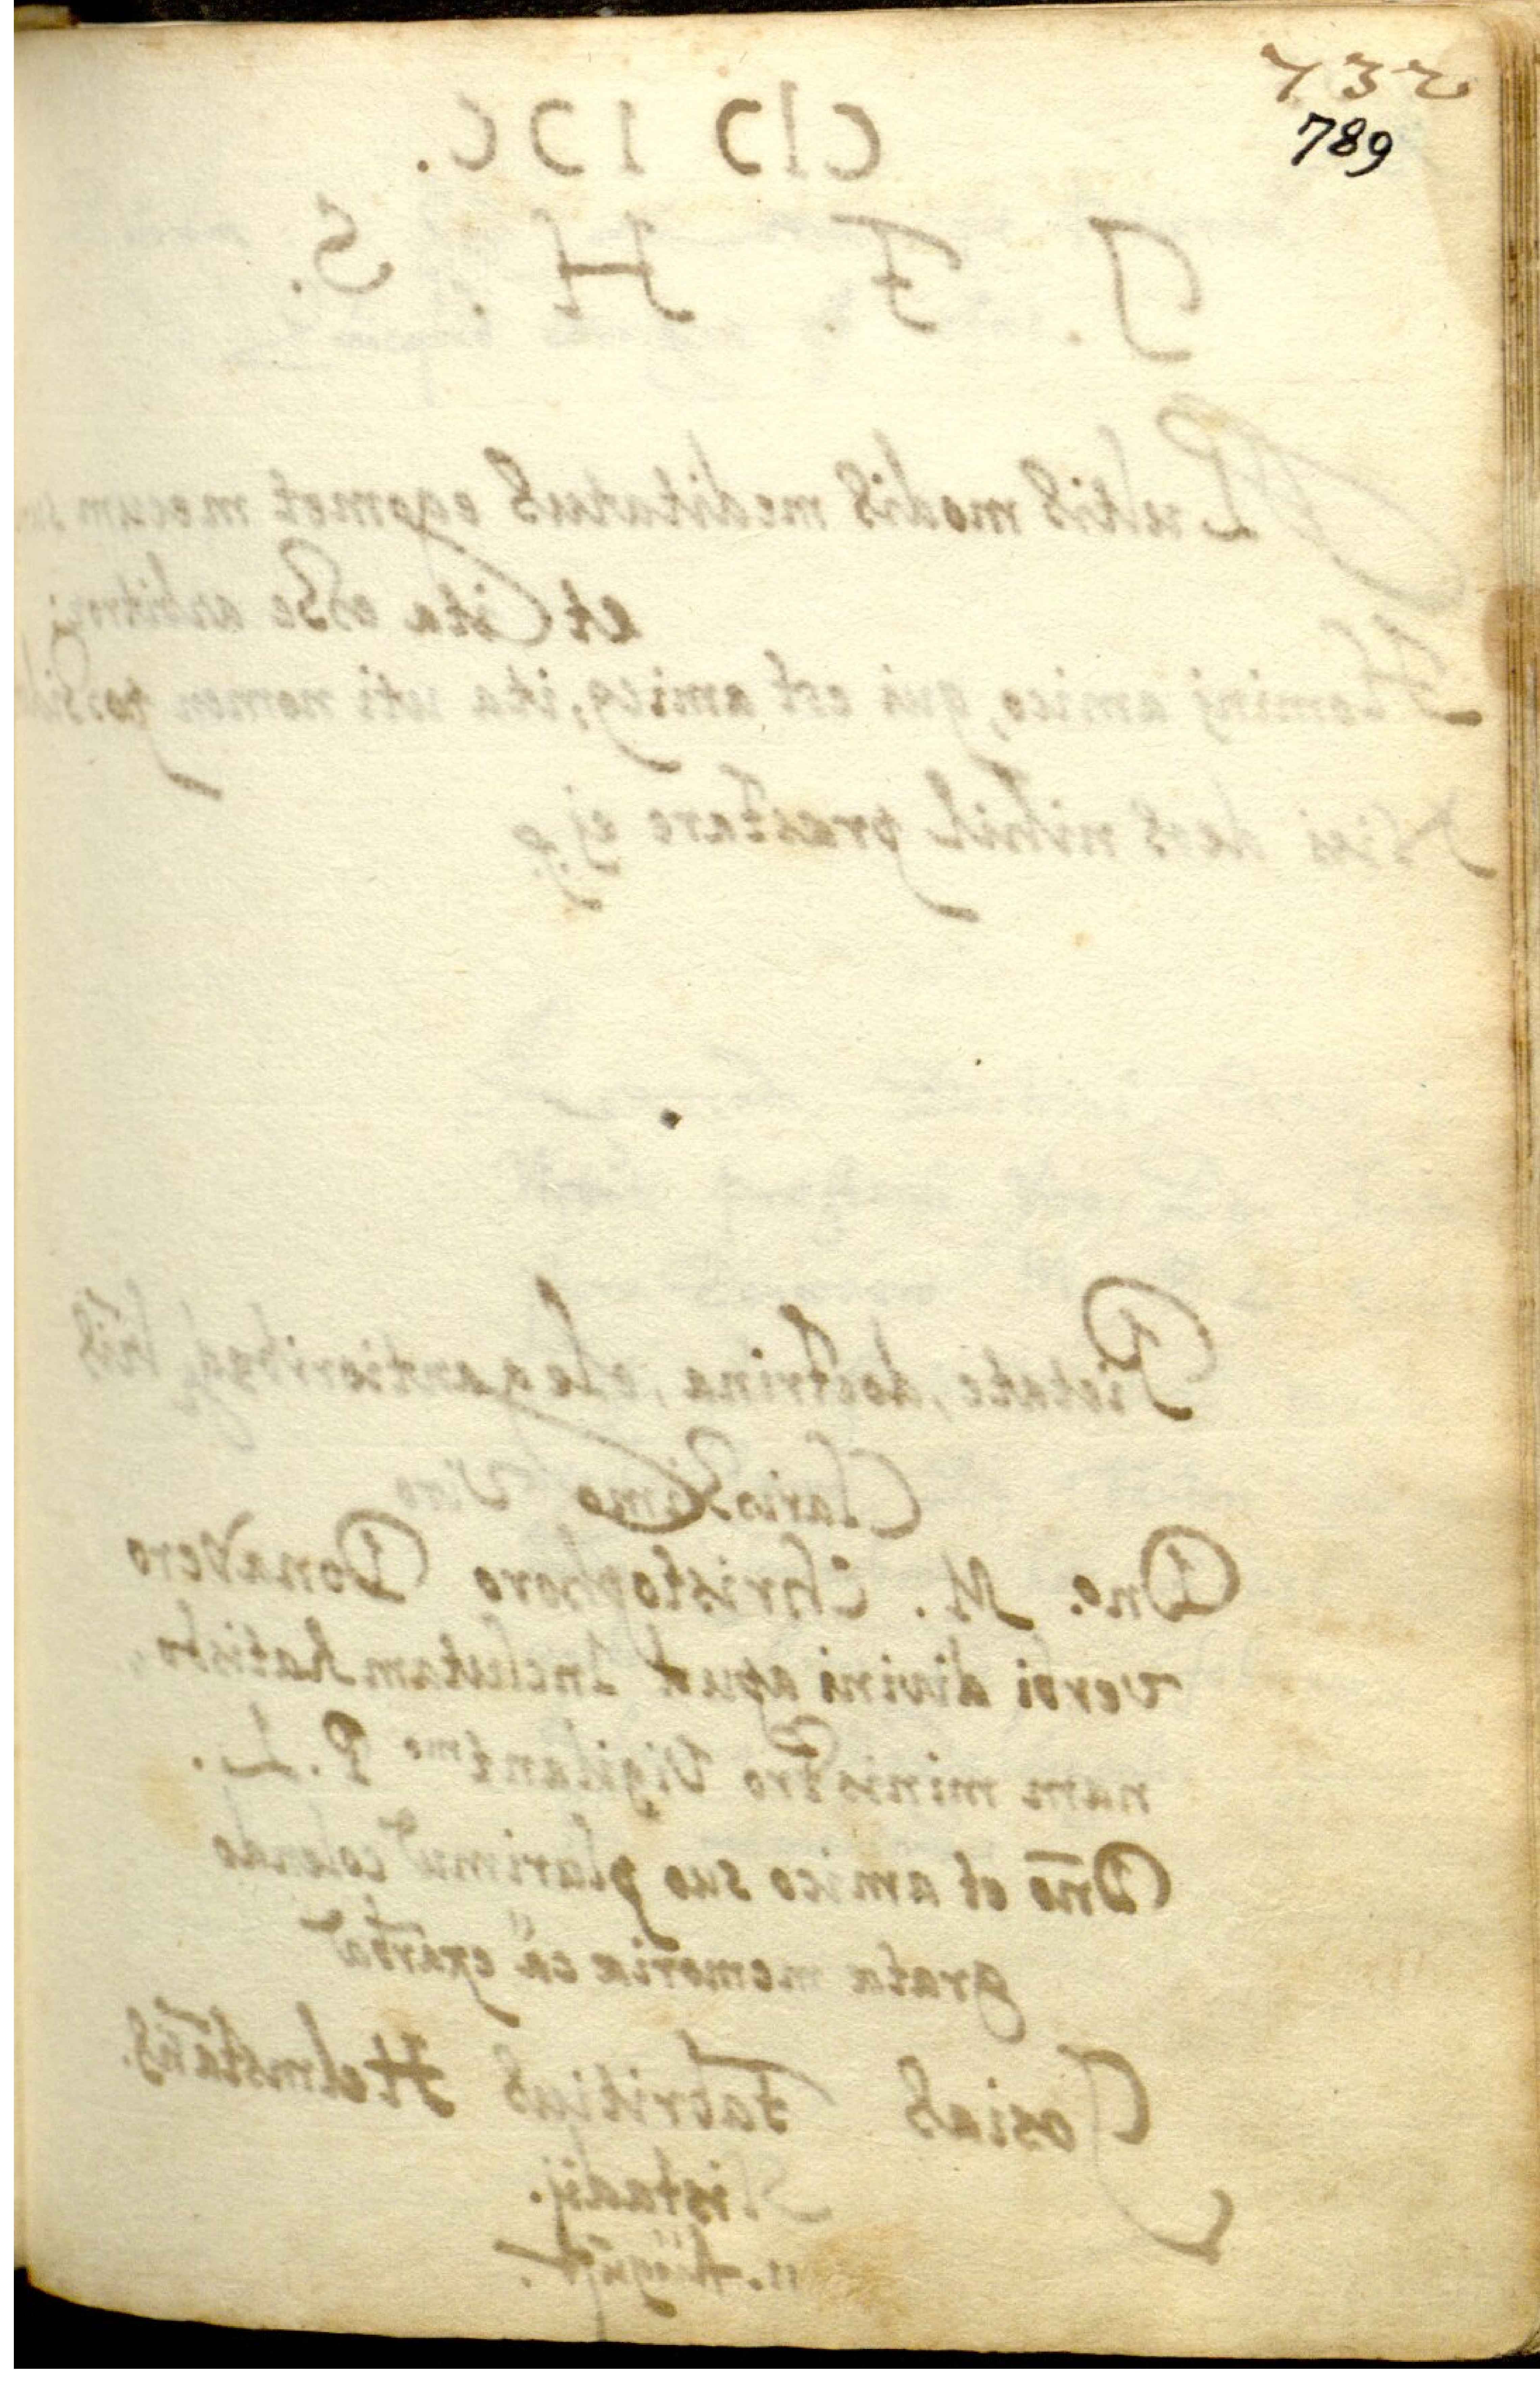 732
789
CIↃ IↃC.
J. F. H. S.
Multis modis meditatus egomet mecum
et ita esse arbitror
Homini amico, qui est amicg, ita uti nomen
Nisi deos nihil praestare ej9
Pietate, doctrina, elegantioribsq lris
Clarissimo Viro
Dno. M. Christophoro Donavero
verbi divini apud Inclutam Ratisbo,
nam ministro Vigilant mo P. L.
Dnō et amico suo plurimū colendo
grata memoria
Josias Fabritius Helmstā
11. August.